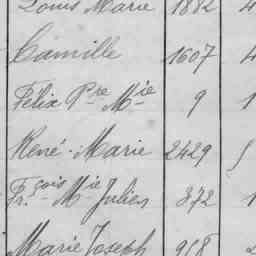 Louis Marie 1882 4
Camille 1607 4
Félix Pre Mie 9 1
René-Marie 2429 5
Frçois Mie Julien 372 1
Marie Joseph 968